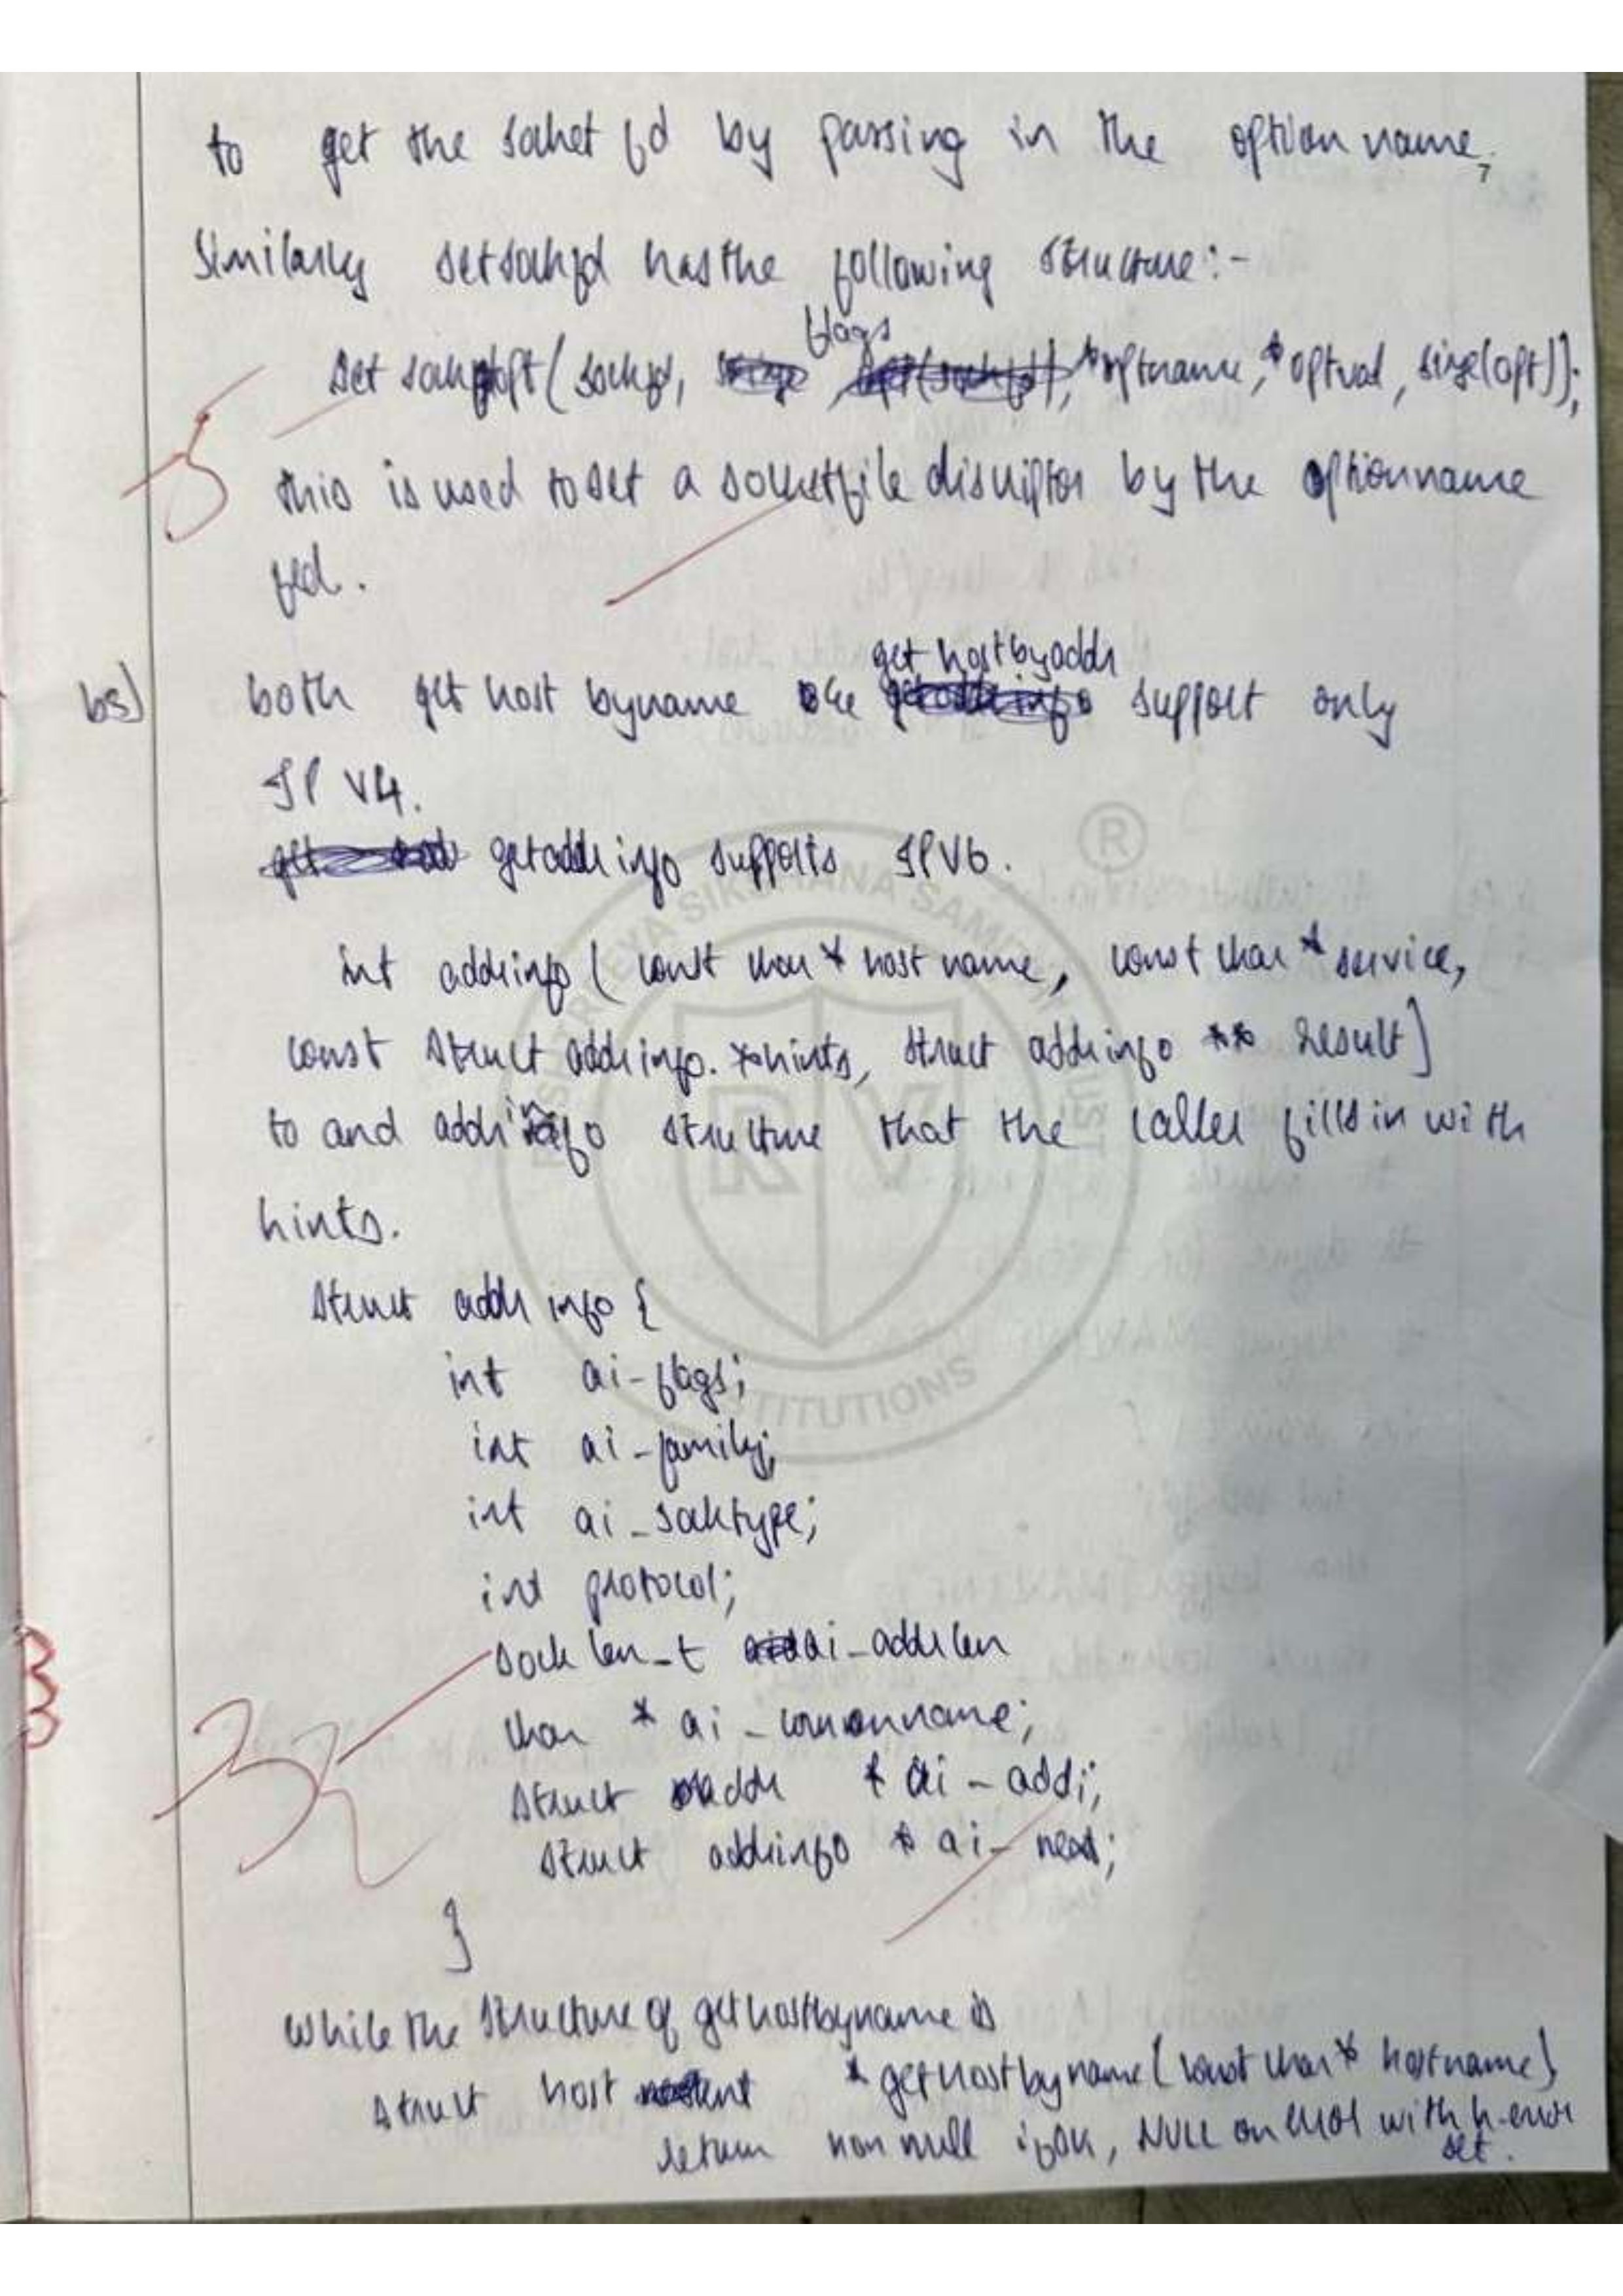 to get the socket fd by passing in the option name.
7
Similarly setsockfd has the following structure:-
flags
set sockopt( sockfd, *optname, *optval, size(opt));
5
this is used to set a socketfile discriptor by the optionname
fed.
get hostbyaddr
b3) both get host byname support only
IP V4.
getaddr info supports IPV6.
int addrinfo ( const char * host name, const char * service,
const struct addrinfo. *hints, struct addrinfo ** result)
to and addrinfo structure that the caller fills in with
hints.
struct addr info {
int ai-flags;
int ai-family;
int ai_socktype;
int protocol;
sock len_t ai-addrlen
char * ai - connonname;
struct addr * ai - addr;
struct addrinfo * ai- next;
}
While the structure of gethostbyname is
struct host * gethostbyname (const char * hostname)
return non null if OK, NULL on error with h-error
set.
R
SIKSHANA SAMITHI TRUST
RV
INSTITUTIONS